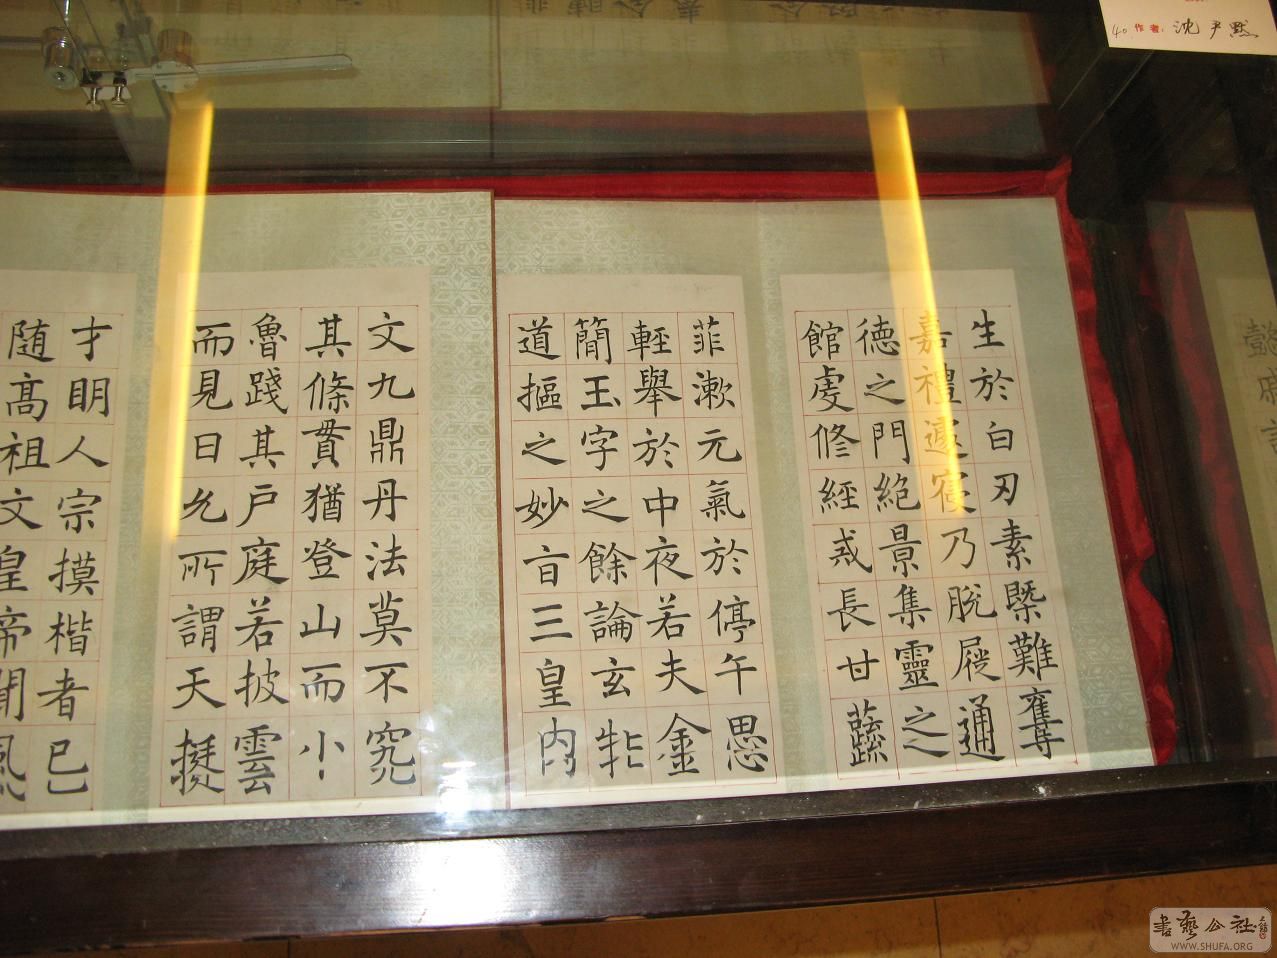 40 作者: 沈尹默
生於白刃素槩難奪
嘉禮遽寢乃脫屣通
德之門絕景集靈之
館虔修經戒長甘蔬
菲漱元氣於停午思
輕舉於中夜若夫金
簡玉字之餘論玄牝
道摳之妙旨三皇内
文九鼎丹法莫不究
其條貫猶登山而小
魯踐其戶庭若披雲
而見日允所謂天挺
才明人宗摸楷者已
随高祖文皇帝聞風
書藝公社
WWW.SHUFA.ORG